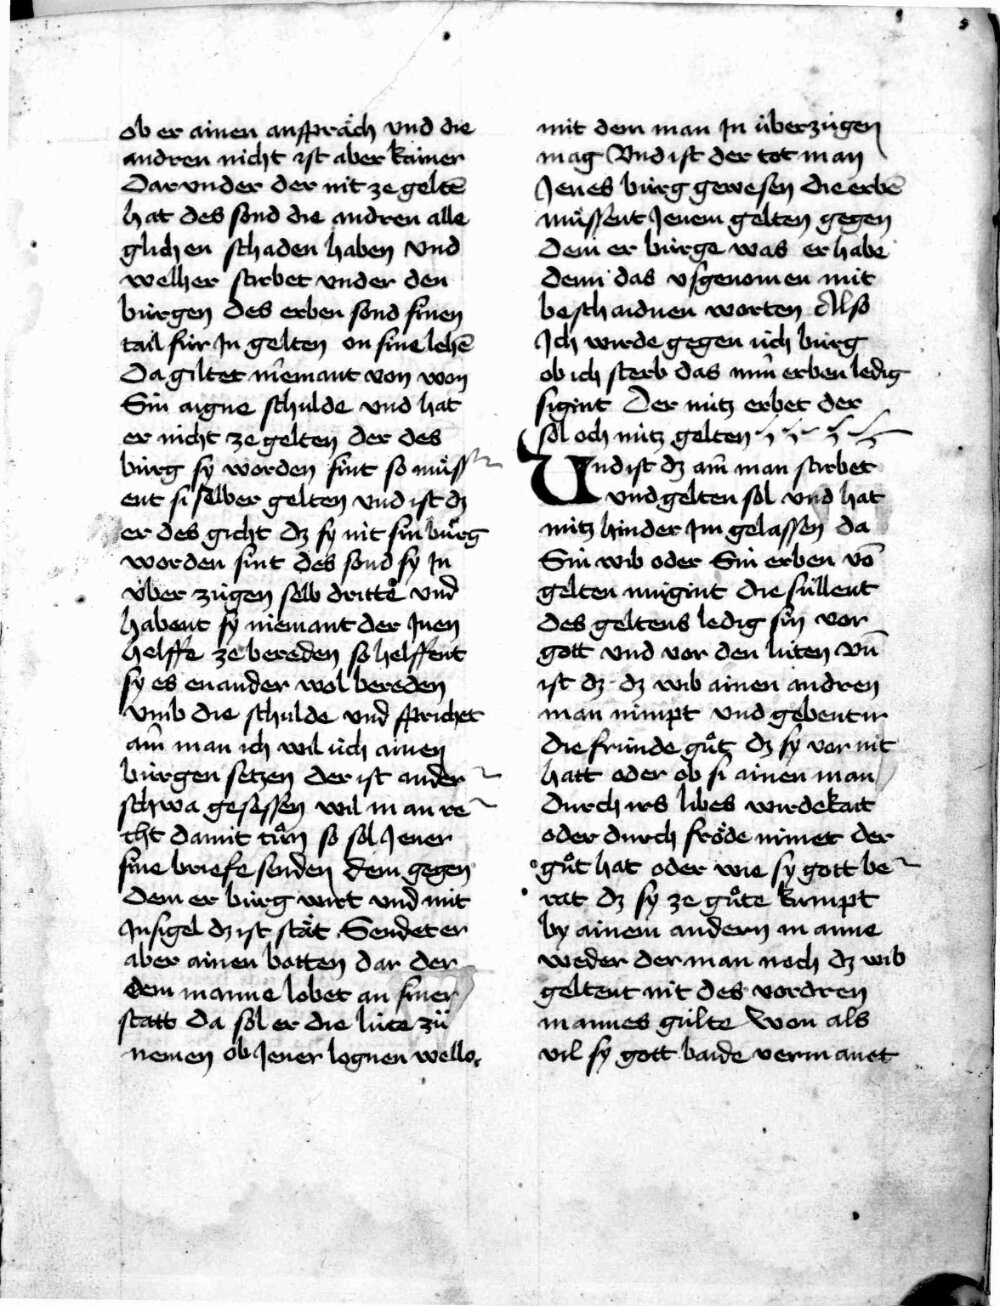 5
ob er ainen anspräch vnd die
andren nicht ist aber kainer
Darunder der nit ze geltē
hat des sond die andren alle
glichen schaden haben vnd
welher stirbet vnder den
bürgen des erben sond sinen
tail für In gelten on sine lehē
Da giltet niemant von won
Sin aigne schulde vnd hat
er nicht ze gelten der des
bürg sy worden sint so müss
ent si selber gelten vnd ist dz
er des gicht dz sy nit sin bürg
worden sint des sond sy In
über zügen selb dritte vnd
habent sy niemant der Inen
helffe ze bereden so helffent
sy es enander wol bereden
vmb die schulde vnd sprichet
ain man ich wil üch ainen
bürgen setzen der ist ander
schwa gesessen wil man re
cht damit tůn so sol Jener
sine briefe senden dem gegen
dem er bürg wirt vnd mit
Insigel dz ist stät Sendet er
aber ainen botten dar der
dem manne lobet an siner
statt da sol er die lüte zů
nemen ob Jener lognen welle
mit dem man In überzügen
mag Vnd ist der tot man
Jenes bürg gewesen die erbē
müssent Jenem gelten gegen
dem er bürge was er habe
denn das vsgenomen mit
beschaidnen worten Also
Ich wirde gegen üch bürg
ob ich sterb das min erben ledig
sigint Der nütz erbet der
sol och nütz gelten
Und ist dz ain man stirbet
vnd gelten sol vnd hat
nütz hinder Im gelassen da
Sin wib oder Sin erben võ
gelten mugint die süllent
des geltens ledig sin vor
gott vnd vor den lüten vñ
ist dz dz wib ainen andren
man nimpt vnd gebent ir
die fründe gůt dz sy vor nit
hatt oder ob si ainen man
durch irs libes wirdekait
oder durch fröde nimet der
gůt hat oder wie sy gott be
rat dz sy ze gůte kumpt
by ainem andern manne
weder der man noch dz wib
geltent nit des vordren
mannes gülte Won als
vil sy gott baide vermanet